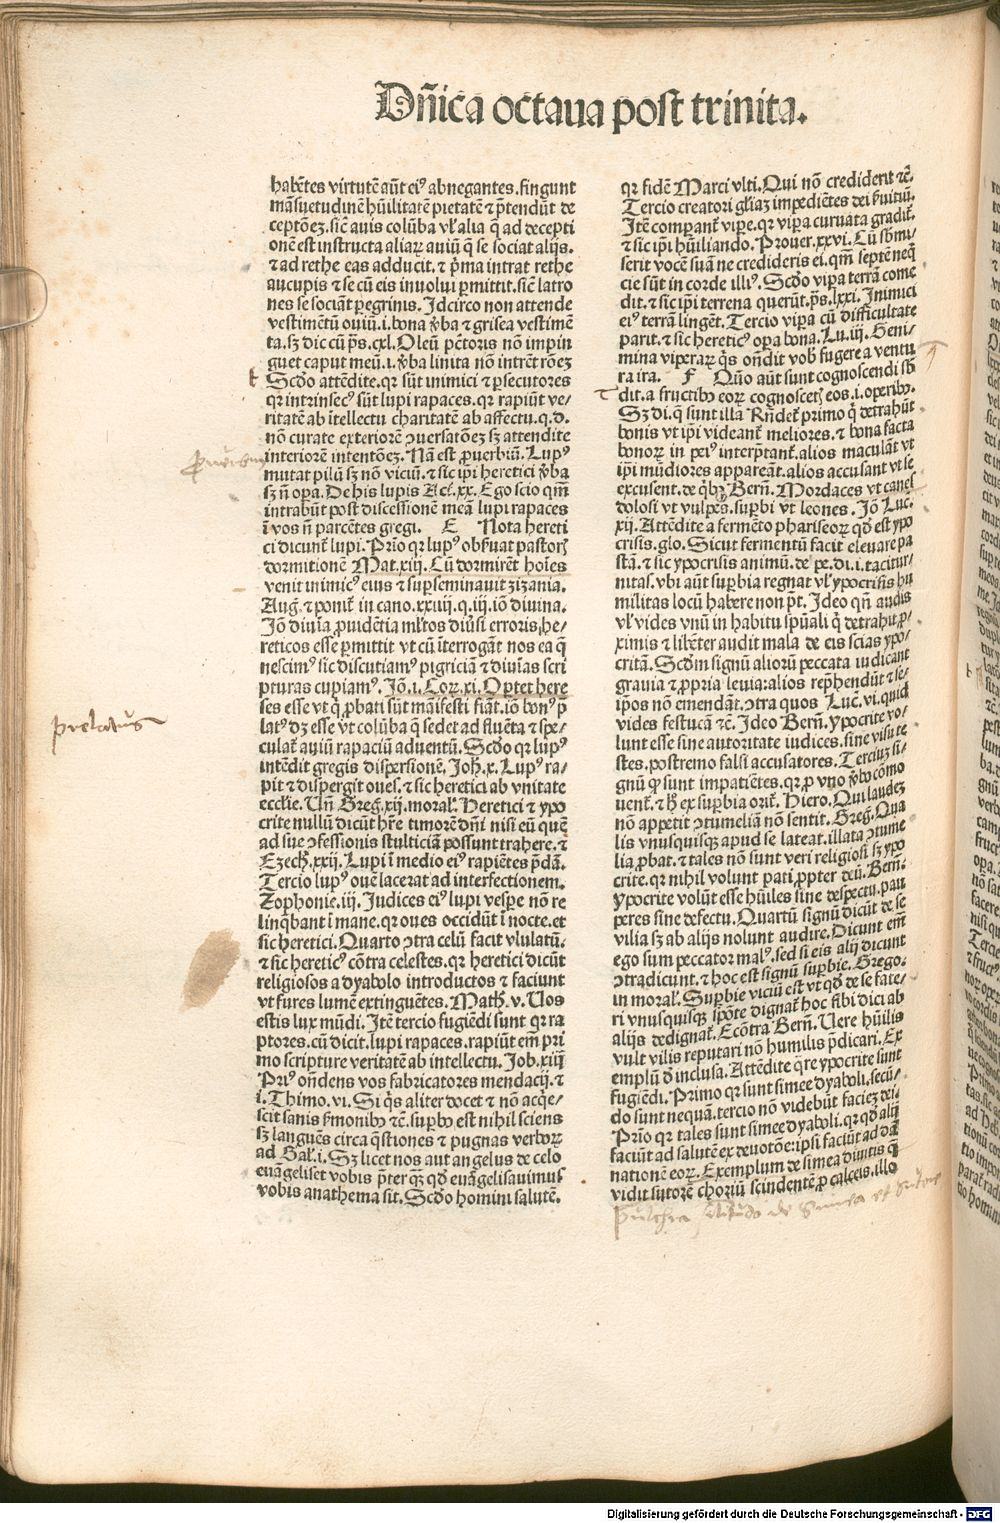 Dñica octaua post trinita.
habẽtes virtutẽ aũt eiꝰ abnegantes.fingunt
mãsuetudinẽ hũilitatẽ pietatẽ ⁊ p̃tendũt de
ceptõeʒ.sic̃ auis colũba vl̓ alia q̃ ad decepti
onẽ est instructa aliaꝝ auiũ q̃ se sociat alijs.
⁊ ad rethe eas adducit.⁊ p̃ma intrat rethe
aucupis ⁊ se cũ eis inuolui ꝑmittit.sic̃ latro
nes se sociãt ꝑegrinis. Idcirco non attende
vestimẽtũ ouiũ.i.bona v̓ba ⁊ grisea vestimẽ
ta.sʒ dic cũ p̃s.cxl.Oleũ pc̃toris nõ impin
guet caput meũ.i.v̓ba linita nõ intrẽt rõeʒ
Scd̓o attẽdite.qꝛ sũt inimici ⁊ ꝑsecutores
qꝛ intrinsecꝰ sũt lupi rapaces.qꝛ rapiũt ve⸗
ritatẽ ab ĩtellectu charitatẽ ab affectu.q.d.
nõ curate exteriorẽ ɔuersatõeʒ sʒ attendite
interiorẽ intentõeʒ. Nã est ꝓuerbiũ. Lupꝰ
mutat pilũ sʒ nõ viciũ.⁊ sic ip̃i heretici v̓ba
sʒ ñ oꝑa. De his lupis Act̓.xx. Ego scio qm̃
intrabũt post discessionẽ meã lupi rapaces
ĩ vos ñ parcẽtes gregi. E Nota hereti
ci dicunt̓ lupi. Prĩo qꝛ lupꝰ obẜuat pastoꝝ
dormitionem Mat.xiij. Cũ dormirẽt hoĩes
venit inimicꝰ eius ⁊ supseminauit zizania.
Aug.⁊ ponit̓ in cano.xxiiij.q.iij.iõ diuina.
Iõ diuĩa ꝓuidẽtia ml̓tos diũsi erroris,he⸗
reticos esse ꝑmittit vt cũ ĩterrogãt nos ea q̃
nescimꝰ sic discutiamꝰ pigriciã ⁊ diuĩas scri
pturas cupiamꝰ. Iõ.i.Coꝝ.xi.Oꝑtet here
ses esse vt q̃ ꝓbati sũt mãifesti fiãt.iõ bonꝰ p̃
latꝰ dʒ esse vt colũba q̃ sedet ad fluẽta ⁊ spe⸗
culat̓ auiũ rapaciũ aduentũ. Scd̓o qꝛ lupꝰ
intẽdit gregis dispersionẽ. Joh̓.x. Lupꝰ ra⸗
pit ⁊ dispergit oues.⁊ sic heretici ab vnitate
eccl̓ie. Uñ Greg.xij.moral̓. Heretici ⁊ ypo
crite nullũ dicũt hr̃e timorẽ dñi nisi eũ quẽ
ad sue ɔfessionis stulticiã possunt trahere.⁊
Ezech̓.xxij. Lupi ĩ medio eiꝰ rapiẽtes p̃dã.
Tercio lupꝰ ouẽ lacerat ad interfectionem.
Zophonie.iij. Iudices eiꝰ lupi vesꝑe nõ re
linq̃bant ĩ mane.qꝛ oues occidũt ĩ nocte.et
sic heretici. Quarto ɔtra celũ facit vlulatũ.
⁊ sic hereticꝰ cõtra celestes.qꝛ heretici dicũt
religiosos a dyabolo introductos ⁊ faciunt
vt fures lumẽ extinguẽtes. Math̓.v. Uos
estis lux mũdi. Itẽ tercio fugiẽdi sunt qꝛ ra
ptores.cũ dicit.lupi rapaces.rapiũt em̃ pri
mo scripture veritatẽ ab intellectu. Job.xiij
Priꝰ oñdens vos fabricatores mendacij.⁊
i.Thimo.vi. Si q̃s aliter docet ⁊ nõ acq̃e⸗
scit sanis ẜmonibꝰ ⁊c̃.suꝑbꝰ est nihil sciens
sʒ languẽs circa q̃stiones ⁊ pugnas verboꝝ
ad Gal̓.i. Sʒ licet nos aut angelus de celo
euãgeliset vobis p̃ter qꝫ qd̓ euãgelisauimus
vobis anathema sit. Scd̓o homini salutẽ.
qꝛ fidẽ Marci vlti.Qui nõ crediderit ⁊c̃.
Tercio creatori gl̓iaʒ impediẽtes dei ẜuitiũ.
Itẽ comparant̓ viꝑe.qꝛ viꝑa curuata gradit̓.
⁊ sic ip̃i hũiliando. Prouer.xxvi. Cũ sb̓mi⸗
serit vocẽ suã ne credideris ei.qm̃ septẽ neq̃
cie sũt in corde illiꝰ. Scd̓o viꝑa terrã come
dit.⁊ sic ip̃i terrena querũt.p̃s.lxxi. Inimici
eiꝰ terrã lingẽt. Tercio viꝑa cũ difficultate
parit.⁊ sic hereticꝰ oꝑa bona. Lu.iij. Geni⸗
mina viperaꝝ q̃s oñdit vob̓ fugere a ventu
ra ira. F Quõ aũt sunt cognoscendi sb̓
dit.a fructibꝰ eoꝝ cognoscet̓ eos.i.oꝑeribꝰ.
Sʒ di.q̃ sunt illa Rñdet̓ primo q̃ detrahũt
bonis vt ip̃i videant̓ meliores.⁊ bona facta
bonoꝝ in peiꝰ interp̃tant̓.alios maculãt vt
ip̃i mũdiores appareãt.alios accusant vt se
excusent.de q̃bꝰ Berñ. Mordaces vt canes
dolosi vt vulpes.suꝑbi vt leones. Iõ Luc̓.
xij. Attẽdite a fermẽto phariseoꝝ qd̓ est ypo
crisis.glo. Sicut fermentũ facit eleuare pa
stã.⁊ sic ypocrisis animũ.de pe.di.i.tacitur⸗
nitas.vbi aũt suꝑbia regnat vl̓ ypocrisis hu
militas locũ habere non p̃t. Ideo qñ audis
vl̓ vides vnũ in habitu spũali q̃ detrahit ꝓ⸗
ximis ⁊ libẽter audit mala de eis scias ypo⸗
critã. Scd̓m signũ alioꝝ peccata iudicant
grauia ⁊ ꝓpria leuia:alios rep̃hendũt ⁊ se⸗
ip̃os nõ emendãt.ɔtra quos Luc̓.vi.quid
vides festucã ⁊c̃. Ideo Berñ.ypocrite vo⸗
lunt esse sine autoritate iudices.sine visu te
stes.postremo falsi accusatores. Terciuʒ si⸗
gnũ qꝫ sunt impatiẽtes.qꝛ ꝓ vno v̓bo cõmo
uent̓.⁊ h̓ ex suꝑbia orit̓. Hiero. Qui laudeʒ
nõ appetit ɔtumeliã nõ sentit. Greg. Qua
lis vnusquisqꝫ apud se lateat.illata ɔtume
lia ꝓbat.⁊ tales nõ sunt veri religiosi sʒ ypo
crite.qꝛ nihil volunt pati ꝓpter deũ. Berñ.
ypocrite volũt esse hũiles sine despectu.pau
peres sine defectu. Quartũ signũ dicũt de se
vilia sʒ ab alijs nolunt audire. Dicunt em̃
ego sum peccator malꝰ.sed si eis alij dicunt
ɔtradicunt.⁊ hoc est signũ suꝑbie. Grego.
in moral̓. Suꝑbie viciũ est vt qd̓ de se fate⸗
ri vnusquisqꝫ spõte dignat̓ hoc sibi dici ab
alijs dedignat̓. Ecõtra Berñ. Vere hũilis
vult vilis reputari nõ humilis p̃dicari. Ex
emplũ d̓ inclusa. Attẽdite q̃re ypocrite sunt
fugiẽdi. Primo qꝛ sunt simee dyaboli.secũ⸗
do sunt nequã.tercio nõ videbũt facieʒ dei⸗
Prĩo qꝛ tales sunt simee dyaboli.qꝛ qd̓ alij
faciũt ad salutẽ ex deuotõe:ipsi faciũt ad dã
nationẽ eoꝝ. Exemplum de simea diuitis q̃
vidit sutorẽ choriũ scindentẽ ꝓ calceis.illo
ꝓuerbium
prelatus
Pulchra similitudo de Simea et sutore
Digitalisierung gefördert durch die Deutsche Forschungsgemeinschaft - DFG